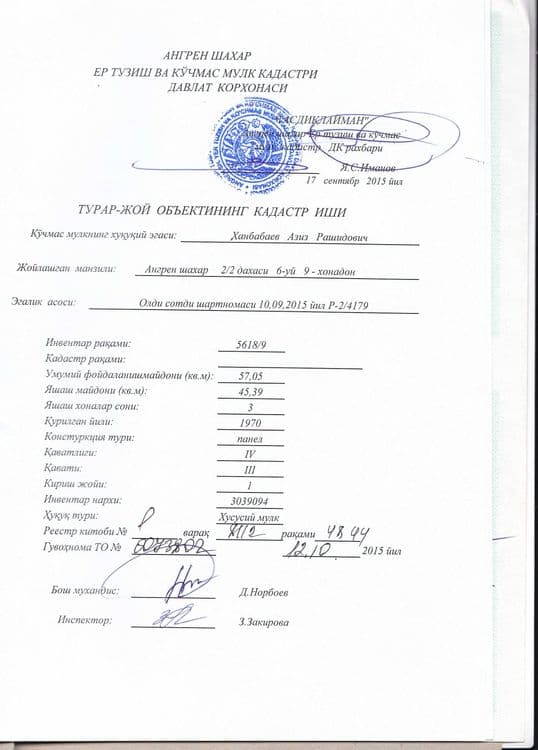 АНГРЕН ШАХАР
ЕР ТУЗИШ ВА КЎЧМАС МУЛК КАДАСТРИ
ДАВЛАТ КОРХОНАСИ
"ТАСДИКЛАЙМАН"
Ангрен шахар Ер тузиш ва кўчмас
мулк кадастр ДК рахбари
Я.С.Иманов
17 сентябр 2015 йил
ТУРАР-ЖОЙ ОБЪЕКТИНИНГ КАДАСТР ИШИ
Кўчмас мулкнинг хуқуқий эгаси: Ханбабаев Азиз Рашидович
Жойлашган манзили: Ангрен шахар 2/2 дахаси 6-уй 9 - хонадон
Эгалик асоси: Олди сотди шартномаси 10,09,2015 йил Р-2/4179
Инвентар рақами: 5618/9
Кадастр рақами:
Умумий фойдаланишмайдони (кв.м): 57,05
Яшаш майдони (кв.м): 45,39
Яшаш хоналар сони: 3
Қурилган йили: 1970
Констуркция тури: панел
Қаватлиги: IV
Қавати: III
Кириш жойи: 1
Инвентар нархи: 3039094
Ҳуқуқ тури: Хусусий мулк
Реестр китоби № варақ рақами
Гувоҳнома ТО № 12.10 2015 йил
Бош мухандис: Д.Норбоев
Инспектор: З.Закирова